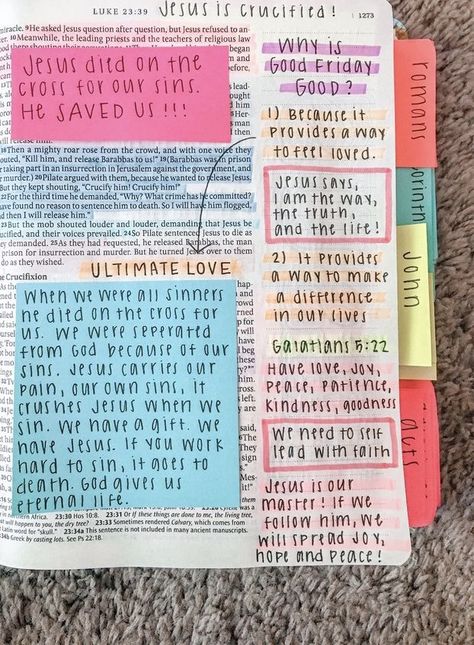 LUKE 23:39
Jesus is crucified!
1273
miracle. 9He asked Jesus question after question, but Jesus refused to an-
Meanwhile, the leading priests and the teachers of religious law
Jesus died on the
cross for our sins.
HE SAVED US!!!
18Then a mighty roar rose from the crowd, and with one voice they
outed, "Kill him, and release Barabbas to us!" 19(Barabbas was in prison
r taking part in an insurrection in Jerusalem against the government, and
r murder.) 20Pilate argued with them, because he wanted to release Jesus.
But they kept shouting, "Crucify him! Crucify him!"
22For the third time he demanded, "Why? What crime has he committed?
have found no reason to sentence him to death. So I will have him flogged,
nd then I will release him."
23But the mob shouted louder and louder, demanding that Jesus be
ucified, and their voices prevailed. 24So Pilate sentenced Jesus to die as
ey demanded. 25As they had requested, he released Barabbas, the man
prison for insurrection and murder. But he turned Jesus over to them
do as they wished.
e Crucifixion
ULTIMATE LOVE
When we were all sinners
he died on the cross for
us. We were seperated
from God because of our
sins. Jesus carries our
pain, our own sins, it
crushes Jesus when we
sin. We have a gift. We
have Jesus. If you work
hard to sin, it goes to
death. God gives us
eternal life.
n northern Africa. 23:30 Hos 10:8. 23:31 Or If these things are done to me, the living tree,
at will happen to you, the dry tree? 23:33 Sometimes rendered Calvary, which comes from
Latin word for "skull." 23:34a This sentence is not included in many ancient manuscripts.
34b Greek by casting lots. See Ps 22:18.
Why is
Good Friday
Good?
1) Because it
provides a way
to feel loved.
Jesus says,
I am the way,
the truth,
and the life!
2) It provides
a way to make
a difference
in our lives
Galatians 5:22
Have love, joy,
peace, patience,
kindness, goodness
We need to self
lead with faith
Jesus is our
master! If we
follow him, we
will spread joy,
hope and peace!
romans
John
acts